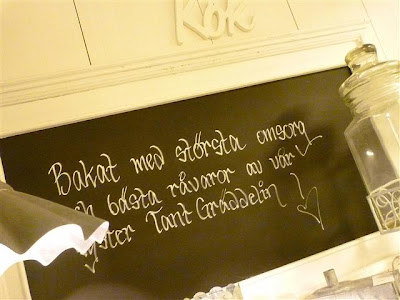 KÖK
Bakat med största omsorg
och bästa råvaror av vår
syster Tant Gräddelin!